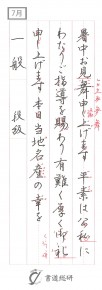 7月
暑中お見舞申し上げます 平素は公私に
わたりご指導を賜わり有難く厚く御礼
申し上げます 本日当地名産の幸を
一般 後級
書道総研